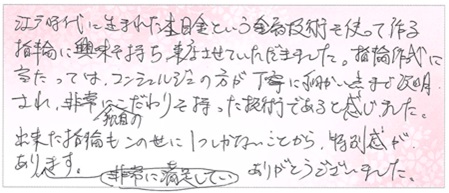 江戸時代に生まれた木目金という金属技術を使って作る
指輪に興味を持ち、来店させていただきました。指輪作成に
当たっては、コンシェルジュの方が丁寧に細かい点まで説明
され、非常にこだわりを持った技術であると感じました。
独自の
出来た指輪もこの世に1つしかないことから、特別感が
あります。
非常に満足してい
ありがとうございました。